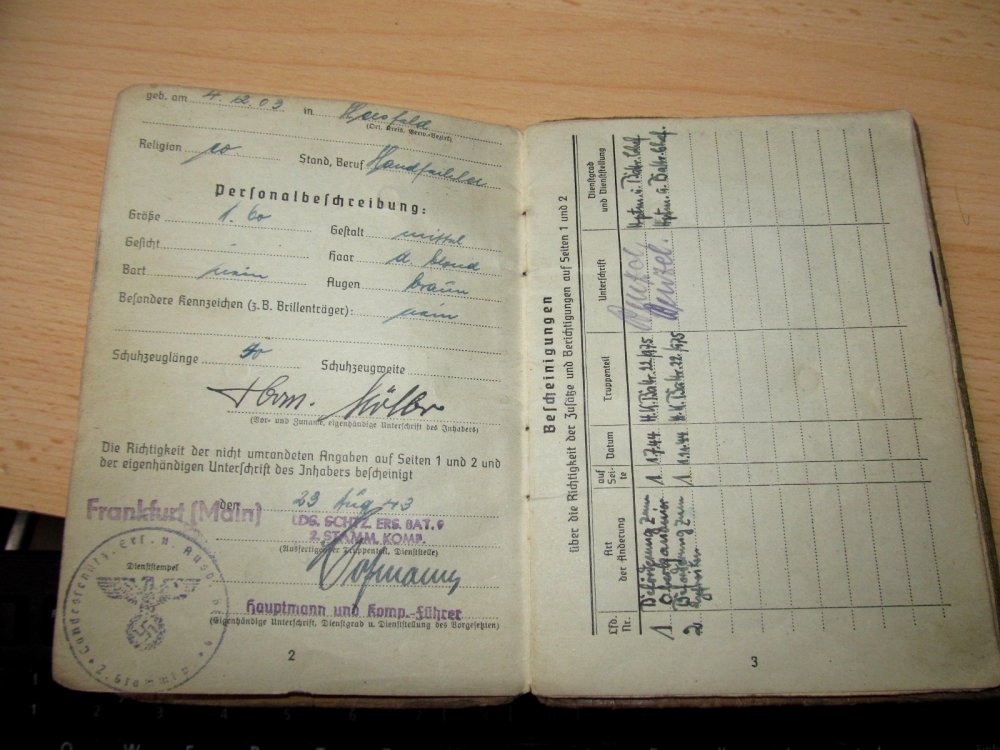 geb. am 4.12.03 in Hersfeld
(Ort, Kreis, Verw.-Bezirk)
Religion ev. Stand, Beruf
Personalbeschreibung:
Größe 1.60 Gestalt mittel
Gesicht Haar d. blond
Bart nein Augen braun
Besondere Kennzeichen (z. B. Brillenträger): nein
Schuhzeuglänge 40 Schuhzeugweite
(Vor- und Zuname, eigenhändige Unterschrift des Inhabers)
Die Richtigkeit der nicht umrandeten Angaben auf Seiten 1 und 2 und
der eigenhändigen Unterschrift des Inhabers bescheinigt
Frankfurt (Main) den 23 Aug 43
LDS. SCHTZ. ERS. BAT. 9
2. STAMM. KOMP.
(Ausfertigender Truppenteil, Dienststelle)
Dienststempel
Hofmann
Hauptmann und Komp.-Führer
(Eigenhändige Unterschrift, Dienstgrad u. Dienststellung des Vorgesetzten)
2
Bescheinigungen
über die Richtigkeit der Zusätze und Berichtigungen auf Seiten 1 und 2
Lfd. Nr.
Art der Änderung
auf Seite
Datum
Truppenteil
Unterschrift
Dienstgrad und Dienststellung
1 Beförderung zum 1 1.7.44 Hptm. u. Battr. Chef.
2. 1 1.11.44 Hptm. u. Battr. Chef.
3